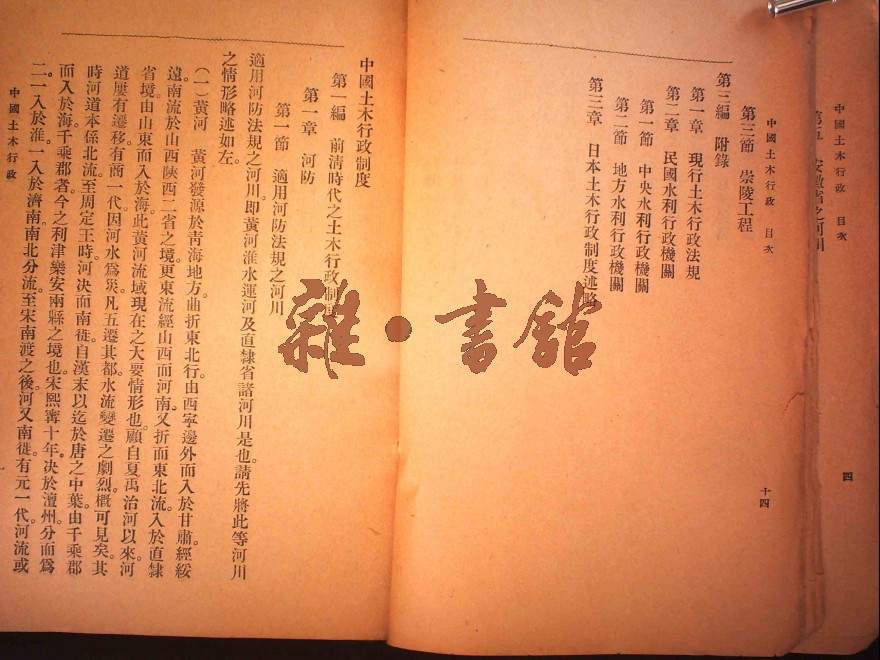 中國土木行政　目次
四
中國土木行政　目次
十四
第三節　崇陵工程
第三編　附錄
第一章　現行土木行政法規
第二章　民國水利行政機關
第一節　中央水利行政機關
第二節　地方水利行政機關
第三章　日本土木行政制度述略
雜·書館
中國土木行政制度
第一編　前清時代之土木行政制
第一章　河防
第一節　適用河防法規之河川
適用河防法規之河川。即黃河淮水運河及直隸省諸河川是也。請先將此等河川
之情形略述如左。
（一）黃河　黃河發源於靑海地方。曲折東北行。由西寧邊外而入於甘肅。經綏
遠。南流於山西陝西二省之境。更東流經山西而河南。又折而東北流。入於直隸
省境。由山東而入於海。此黃河流域現在之大要情形也。顧自夏禹治河以來。河
道屢有遷移。有商一代。因河水爲災。凡五遷其都。水流變遷之劇烈。槪可見矣。其
時河道本係北流。至周定王時。河決而南徙。自漢末以迄於唐之中葉。由千乘郡
而入於海。千乘郡者。今之利津樂安兩縣之境也。宋熙寗十年。決於澶州。分而爲
二。一入於淮。一入於濟南。南北分流。至宋南渡之後。河又南徙。有元一代。河流或
中國土木行政